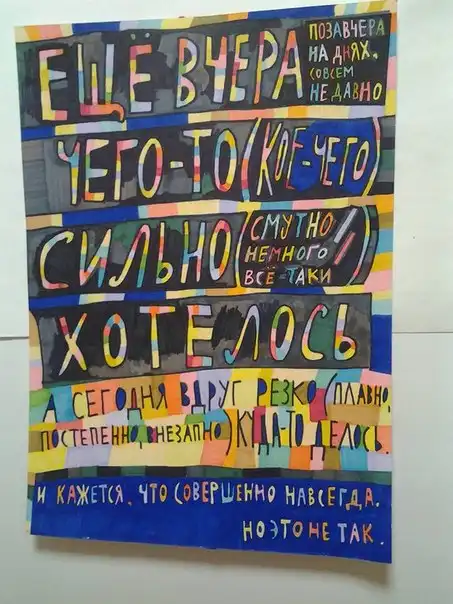 ЕЩЁ ВЧЕРА
ПОЗАВЧЕРА
НА ДНЯХ,
СОВСЕМ
НЕДАВНО
ЧЕГО-ТО (КОЕ-ЧЕГО)
СИЛЬНО (СМУТНО
НЕМНОГО
ВСЁ-ТАКИ)
ХОТЕЛОСЬ
А СЕГОДНЯ ВДРУГ РЕЗКО (ПЛАВНО,
ПОСТЕПЕННО, ВНЕЗАПНО) КУДА-ТО ДЕЛОСЬ.
И КАЖЕТСЯ, ЧТО СОВЕРШЕННО НАВСЕГДА.
НО ЭТО НЕ ТАК.